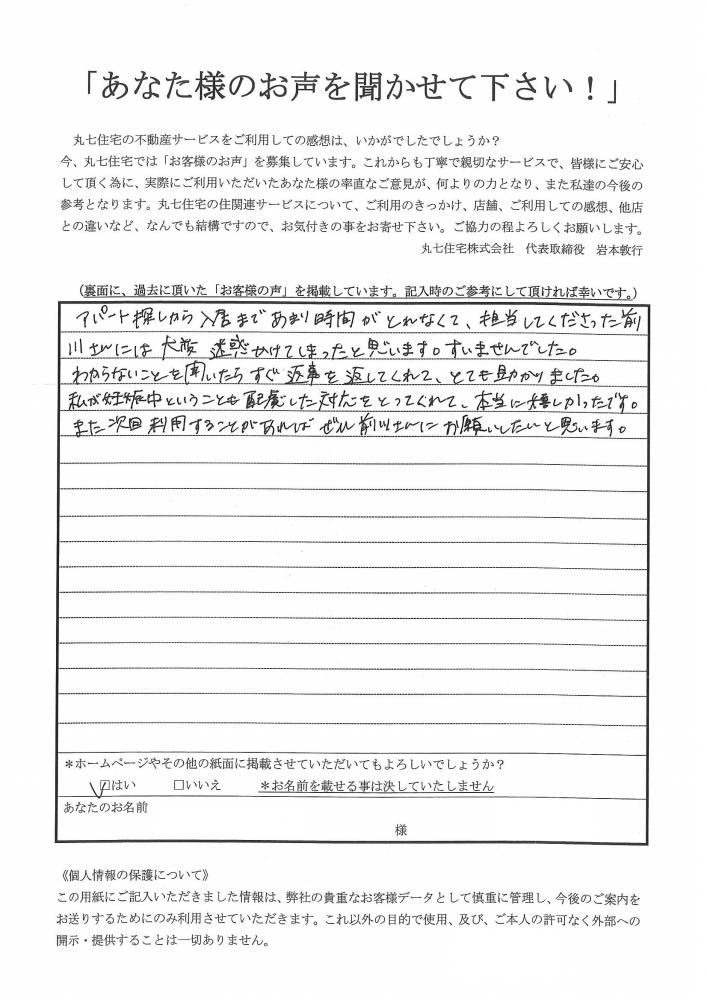 「あなた様のお声を聞かせて下さい！」
丸七住宅の不動産サービスをご利用しての感想は、いかがでしたでしょうか？
今、丸七住宅では「お客様のお声」を募集しています。これからも丁寧で親切なサービスで、皆様にご安心
して頂く為に、実際にご利用いただいたあなた様の率直なご意見が、何よりの力となり、また私達の今後の
参考となります。丸七住宅の住関連サービスについて、ご利用のきっかけ、店舗、ご利用しての感想、他店
との違いなど、なんでも結構ですので、お気付きの事をお寄せ下さい。ご協力の程よろしくお願いします。
丸七住宅株式会社　代表取締役　岩本敦行
（裏面に、過去に頂いた「お客様の声」を掲載しています。記入時のご参考にして頂ければ幸いです。）
アパート探しから入居まであまり時間がとれなくて、担当してくださった前
川さんには大変迷惑かけてしまったと思います。すいませんでした。
わからないことを聞いたらすぐ返事を返してくれて、とても助かりました。
私が妊娠中ということも配慮した対応をとってくれて、本当に嬉しかったです。
また次回利用することがあればぜひ前川さんにお願いしたいと思います。
＊ホームページやその他の紙面に掲載させていただいてもよろしいでしょうか？
☑はい　□いいえ　＊お名前を載せる事は決していたしません
あなたのお名前
様
《個人情報の保護について》
この用紙にご記入いただきました情報は、弊社の貴重なお客様データとして慎重に管理し、今後のご案内を
お送りするためにのみ利用させていただきます。これ以外の目的で使用、及び、ご本人の許可なく外部への
開示・提供することは一切ありません。